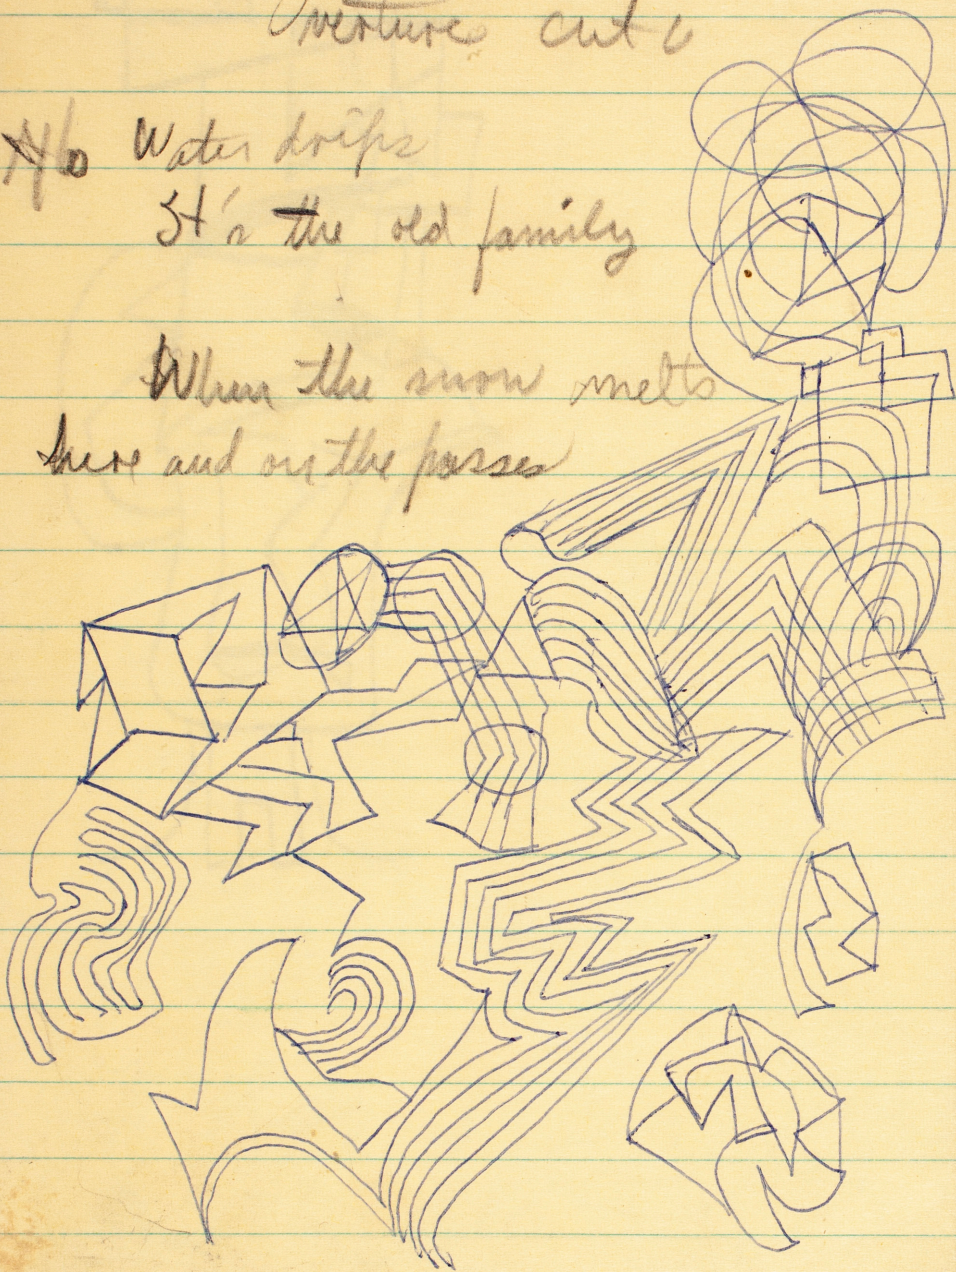 Overture cut 6
No Water drips
It's the old family
When the snow melts
here and on the passes